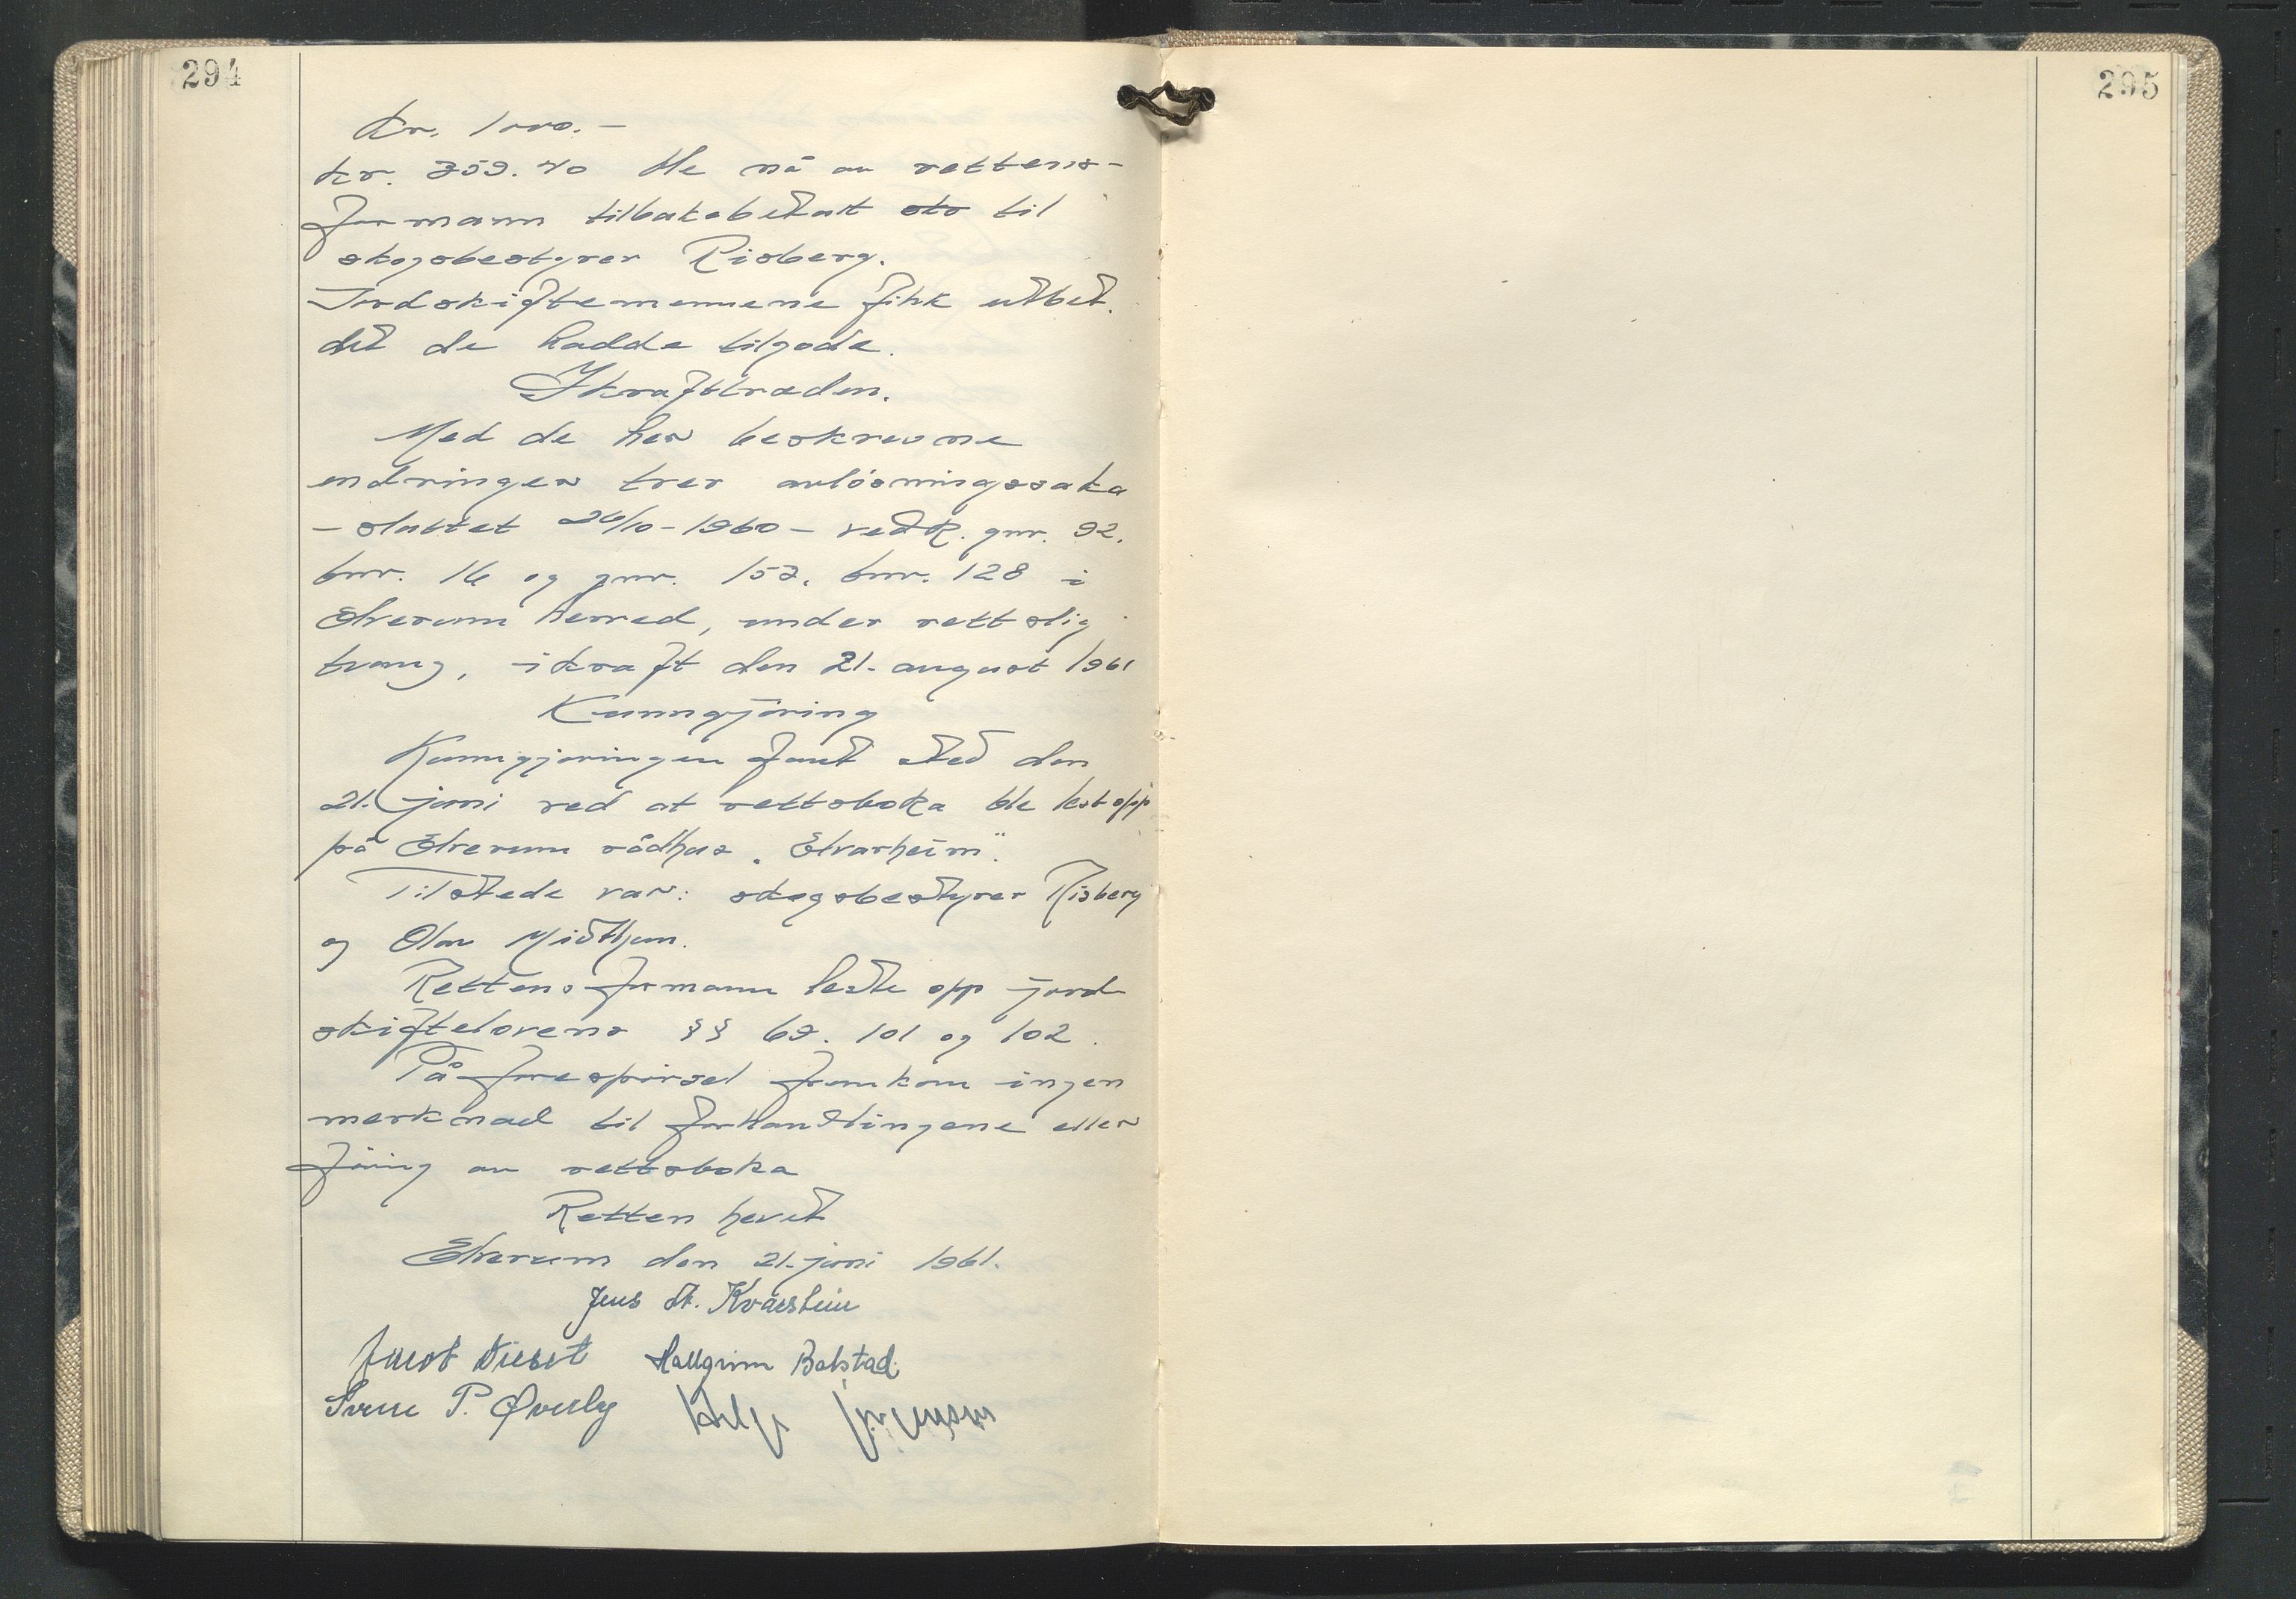 294
295
Kr. 1000.-
kr. 359.40 ble nå av rettens-
formann tilbakebetalt til
skogsbestyrer Risberg.
Jordskiftemennene fikk utbet.
det de hadde tilgode.
Ikrafttræden.
Med de her beskrevne
endringer trer avløsningssaka
- sluttet 26/10-1960 - vedk. gnr. 92,
bnr. 16 og gnr. 152, bnr. 128 i
Elverum herred, under rettslig
tvang, ikraft den 21. august 1961
Kunngjøring
Kunngjøringen fant sted den
21. juni ved at rettsboka ble lest opp
på Elverum rådhus "Elvarheim".
Tilstede var: skogsbestyrer Risberg
og Olav Midthun.
Rettens formann leste opp jord
skiftelovens §§ 69. 101 og 102.
På forespørsel fremkom ingen
merknad til forhandlingene eller
føring av rettsboka
Retten hevet
Elverum den 21. juni 1961.
Jens St. Kværstein
Hallgrim Bolstad.
Sverre P. Øverby Helge